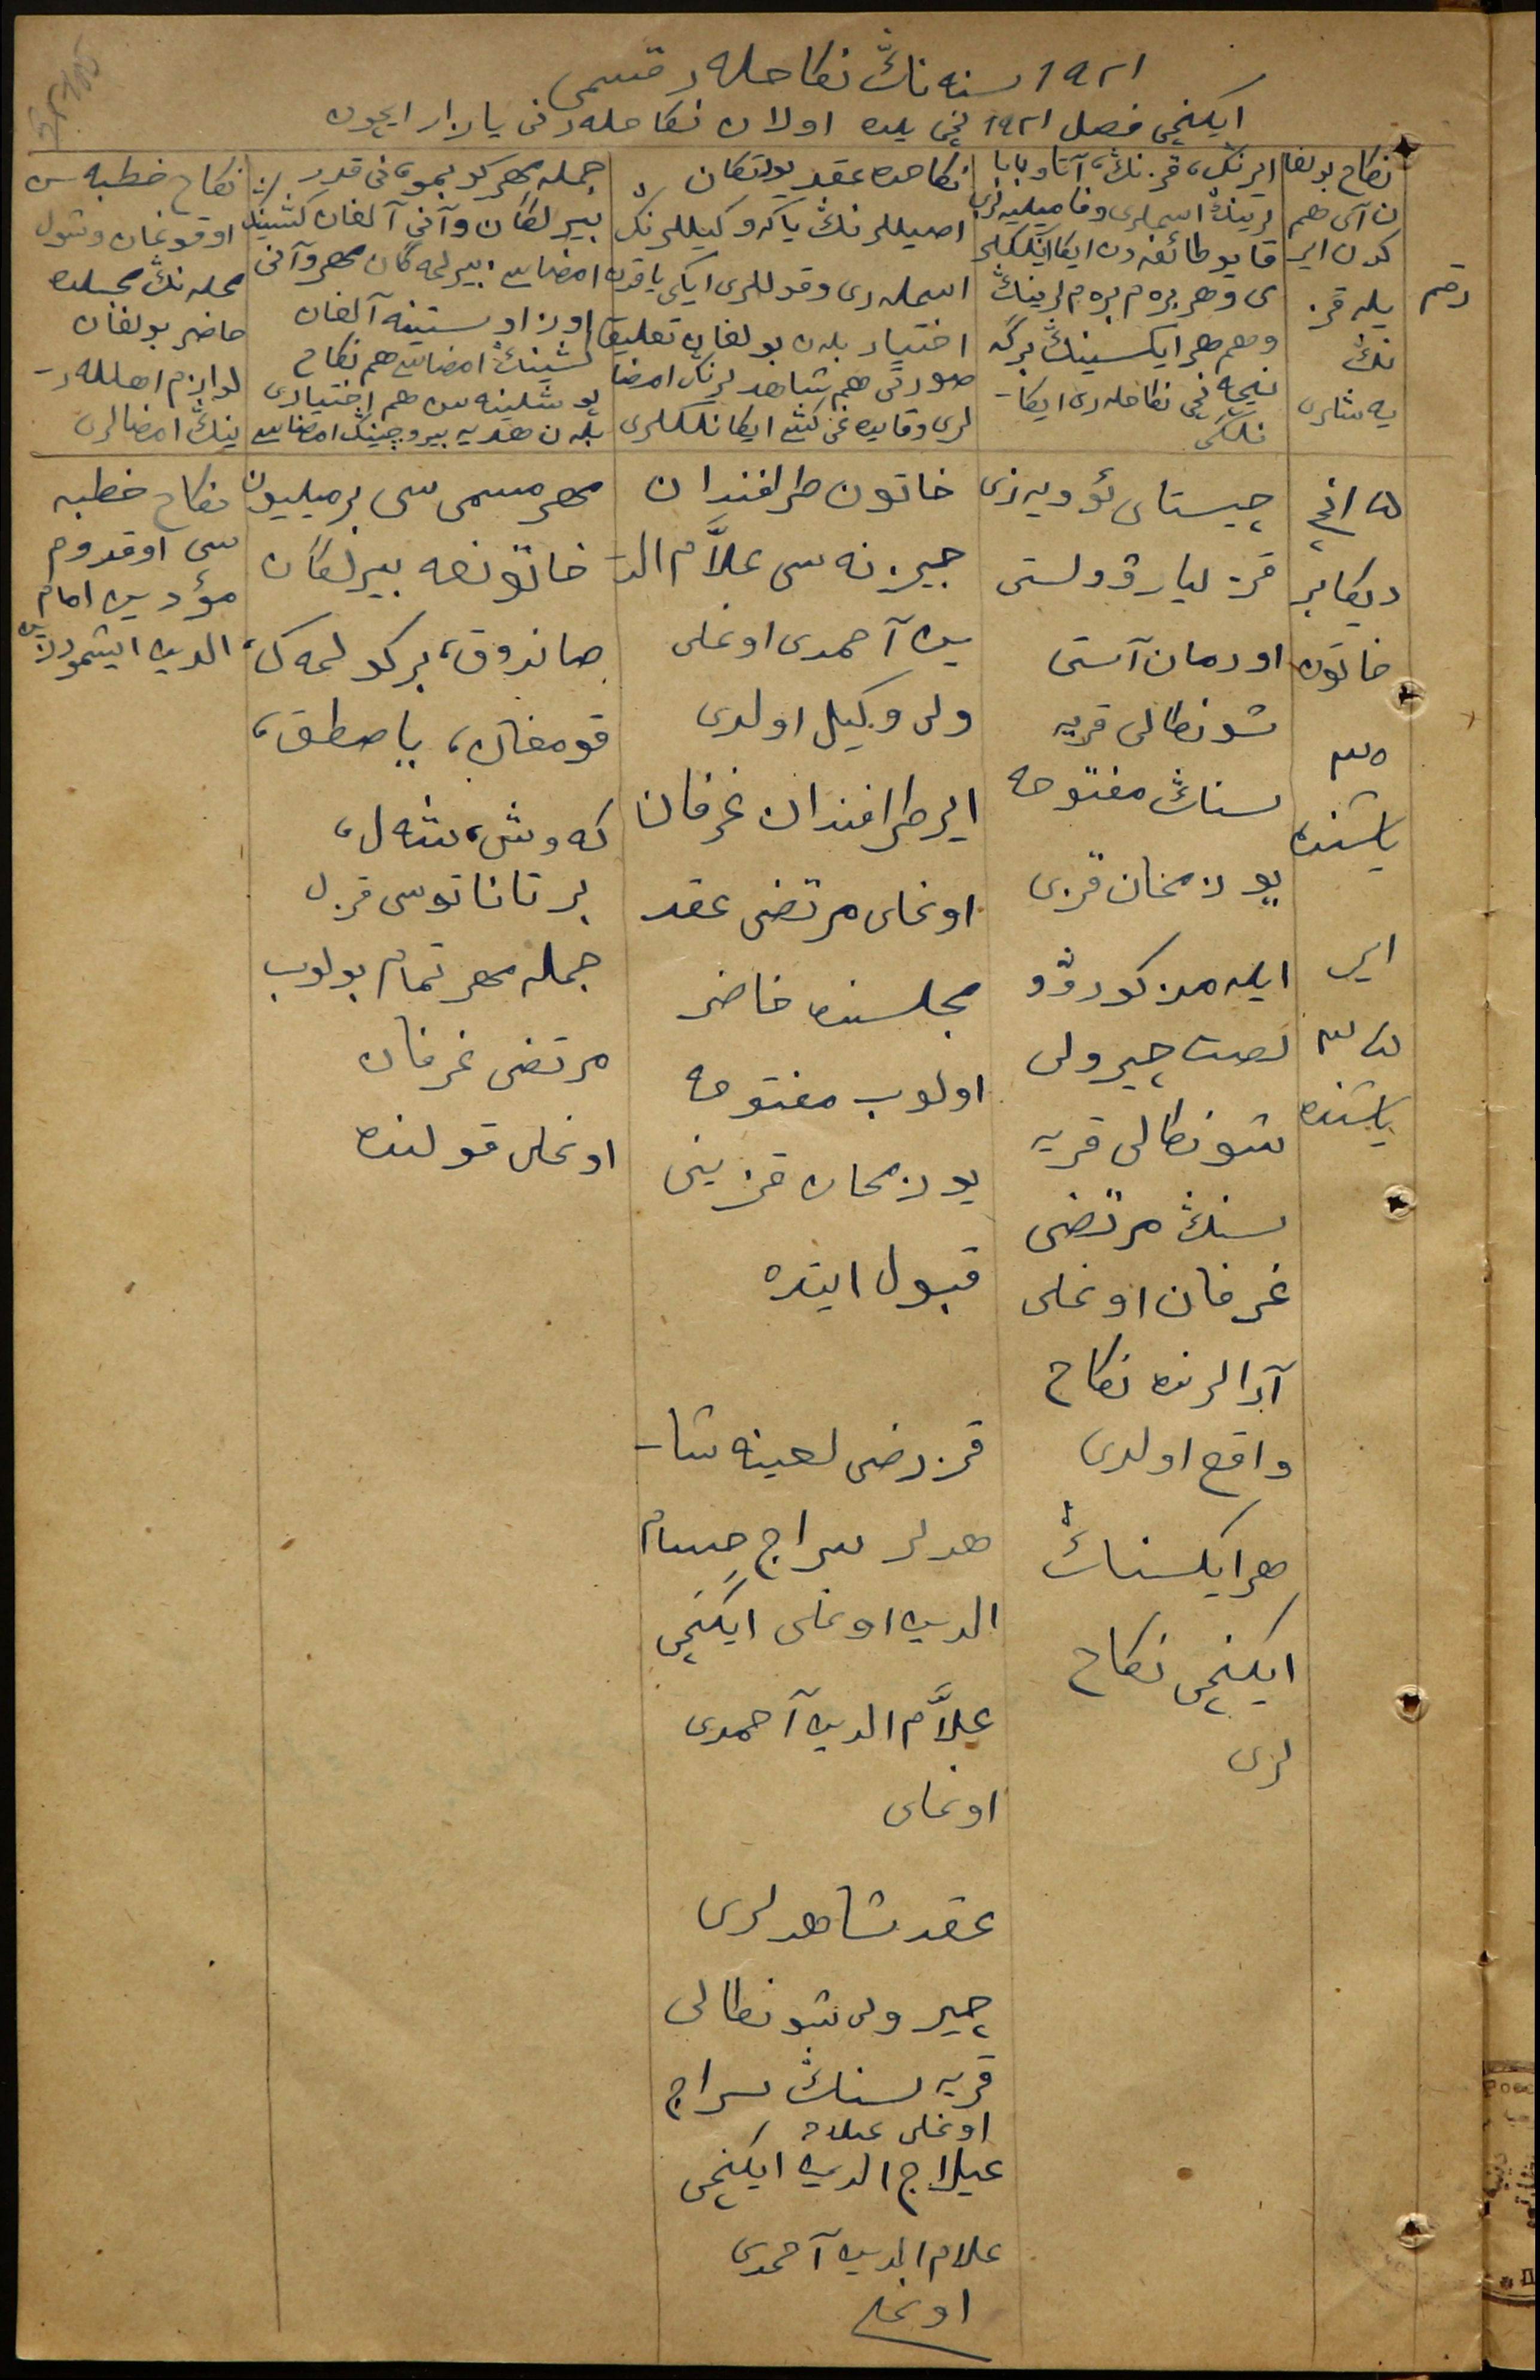 ١٩٢١ سنه ناڭ نكاحلەر قسمى
ايكنچى فصل ١٩٢١ نچى يلده اولان نكاحلەرنى يازار ايچون
رقم
نكاح بولغا
ن آى هم
كون اير
يله قز
نڭ
يه شلرى
ايرنڭ، قزنڭ، آتا و بابا
لرينڭ اسملرى و فاميليه لرى
قايو طائفه دن ايكانلكلر
ى و هر بره م بره م لرينڭ
و هم هر ايكسينڭ بركه
نيچه نچى نكاحلەرى ايكا-
نلگى
نكاحده عقد بولتكان
اصيللرنڭ ياكه وكيللرنڭ
اسملەرى و قوللرى ايكى ياقدن
اختيار بلەن بولغان تعليق
صورتى هم شاهدلرنڭ امضا
لرى و قايده غى كشى ايكانلكلرى
جمله مهر كوبمو، نى قدر
بيرلگان و آنى آلغان كشينڭ
امضاسى بيرلمه گان مهر و آنى
اوز اوستينه آلغان
كشينڭ امضاسى هم نكاح
بولشلينه سن هم اختيارى
بلەن هديه بيروچينڭ امضاسى
نكاح خطبه سن
اوقوغان و شول
محله نڭ مجلسده
حاضر بولغان
لوازم اهللەر-
ينڭ امضالرى
١٥ انچى
ديكابر
خاتون
٣٥
ياشنده
اير
٣٥
ياشنده
چيستاى ئوويەزى
قز ليار ۋولستى
اورمان آستى
شونطالى قريه
سناڭ مفتوحه
بورمخان قزى
ايله مذكور ۋو
لصت چيرولى
شونطالى قريه
سنڭ مرتضى
غرفان اوغلى
آرالرنده نكاح
واقع اولدى
هر ايكسناڭ
ايكنچى نكاح
لرى
خاتون طرافندان
جيزنه سى علاّم الد-
ين آحمدى اوغلى
ولى وكيل اولدى
اير طرافندان غرفان
اوغلى مرتضى عقد
مجلسنده حاضر
اولوب مفتوحه
بورمخان قزينى
قبول ايتده
قز رضى لعينه شا-
هدلر سراج حسام
الدين اوغلى ايكنچى
علاّم الدين آحمدى
اوغلى
عقد شاهدلرى
چيرولى شونطالى
قريه سناڭ سراج
اوغلى علاء
علاج الدين ايكنچى
علام الدين آحمدى
اوغلى
مهر مسمى سى بر ميليون
خاتونغه بيرلگان
صاندوق، بر كولمه ك،
قومغان، ياصطق،
كه وش، شەل،
بر تانا توسى قزل
جمله مهر تمام بولوب
مرتضى غرفان
اوغلى قولنده
نكاح خطبه
سى اوقدوم
مؤذن امام
الدين ايشمورزين